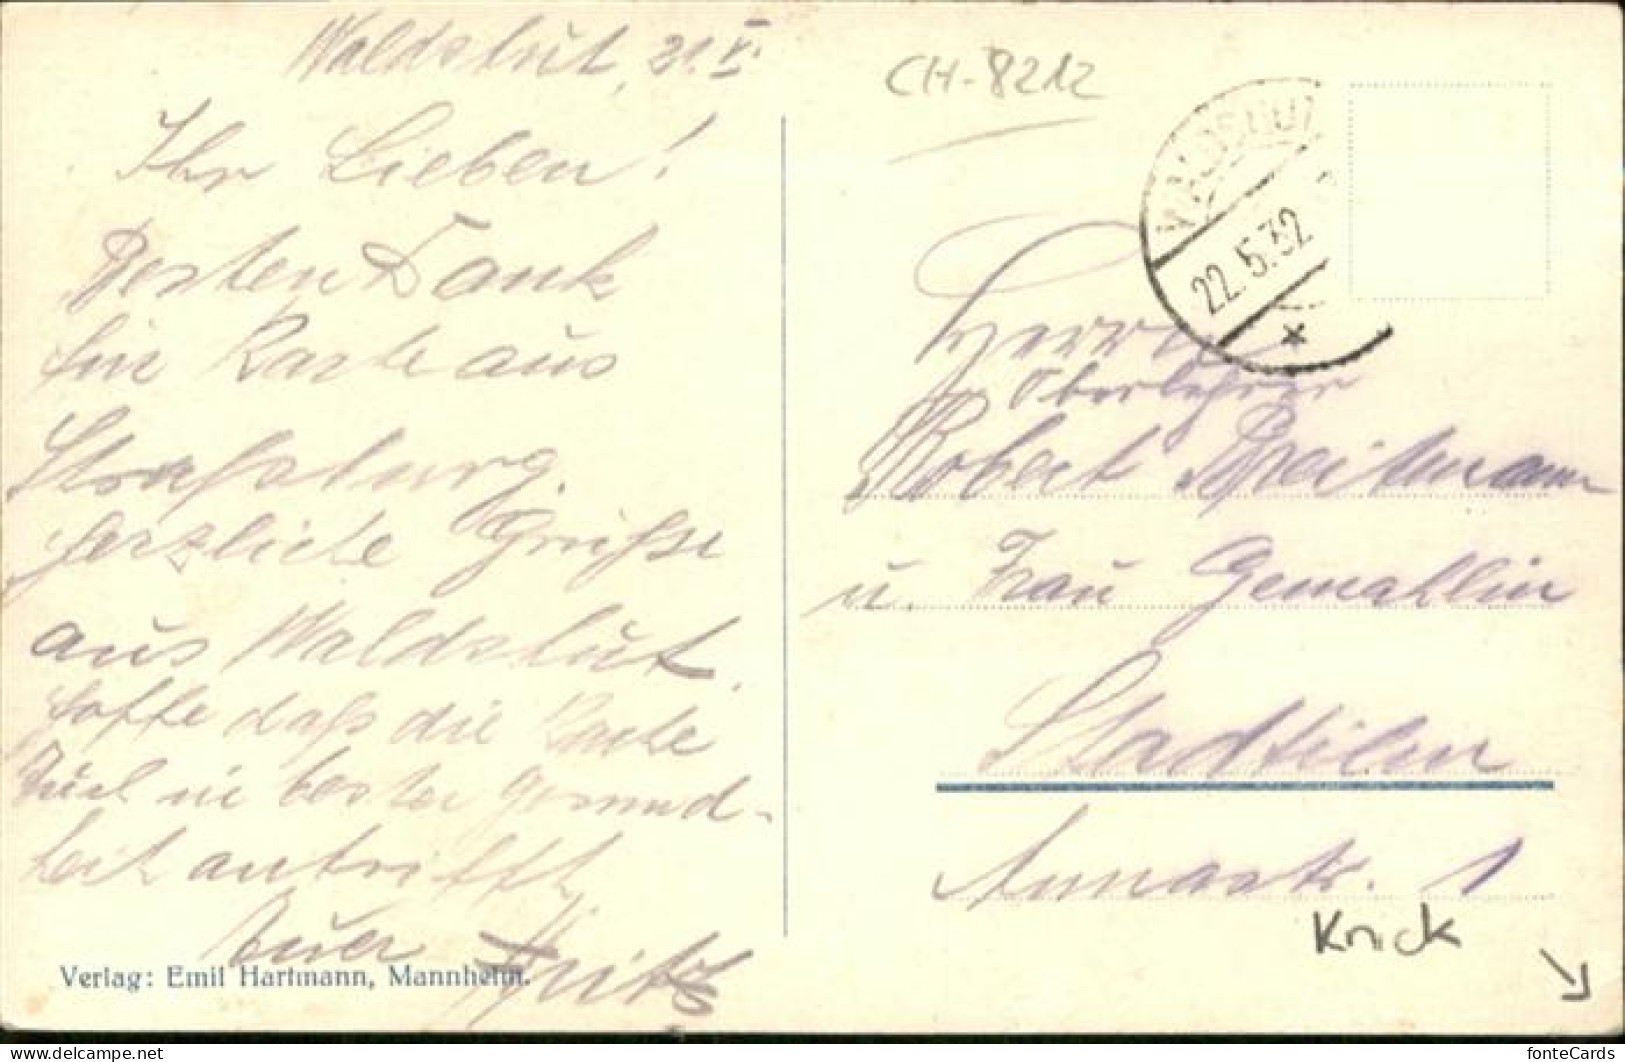 Waldshut, 21. V.
Ihr Lieben!
Besten Dank
für Karte aus
Straßburg.
Herzliche Grüße
aus Waldshut.
Hoffe daß die Karte
Euch in bester Gesund-
heit antrifft
Euer Fritz
Verlag: Emil Hartmann, Mannheim.
CH-8212
WALDSHUT
22.5.32
Herrn
Oberlehrer
Robert Breitmann
u. Frau Gemahlin
Stadtilm
Annastr. 1
Knick
fonteCards